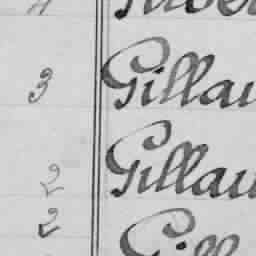 3 Gillau
2 Gillau
2 Gill